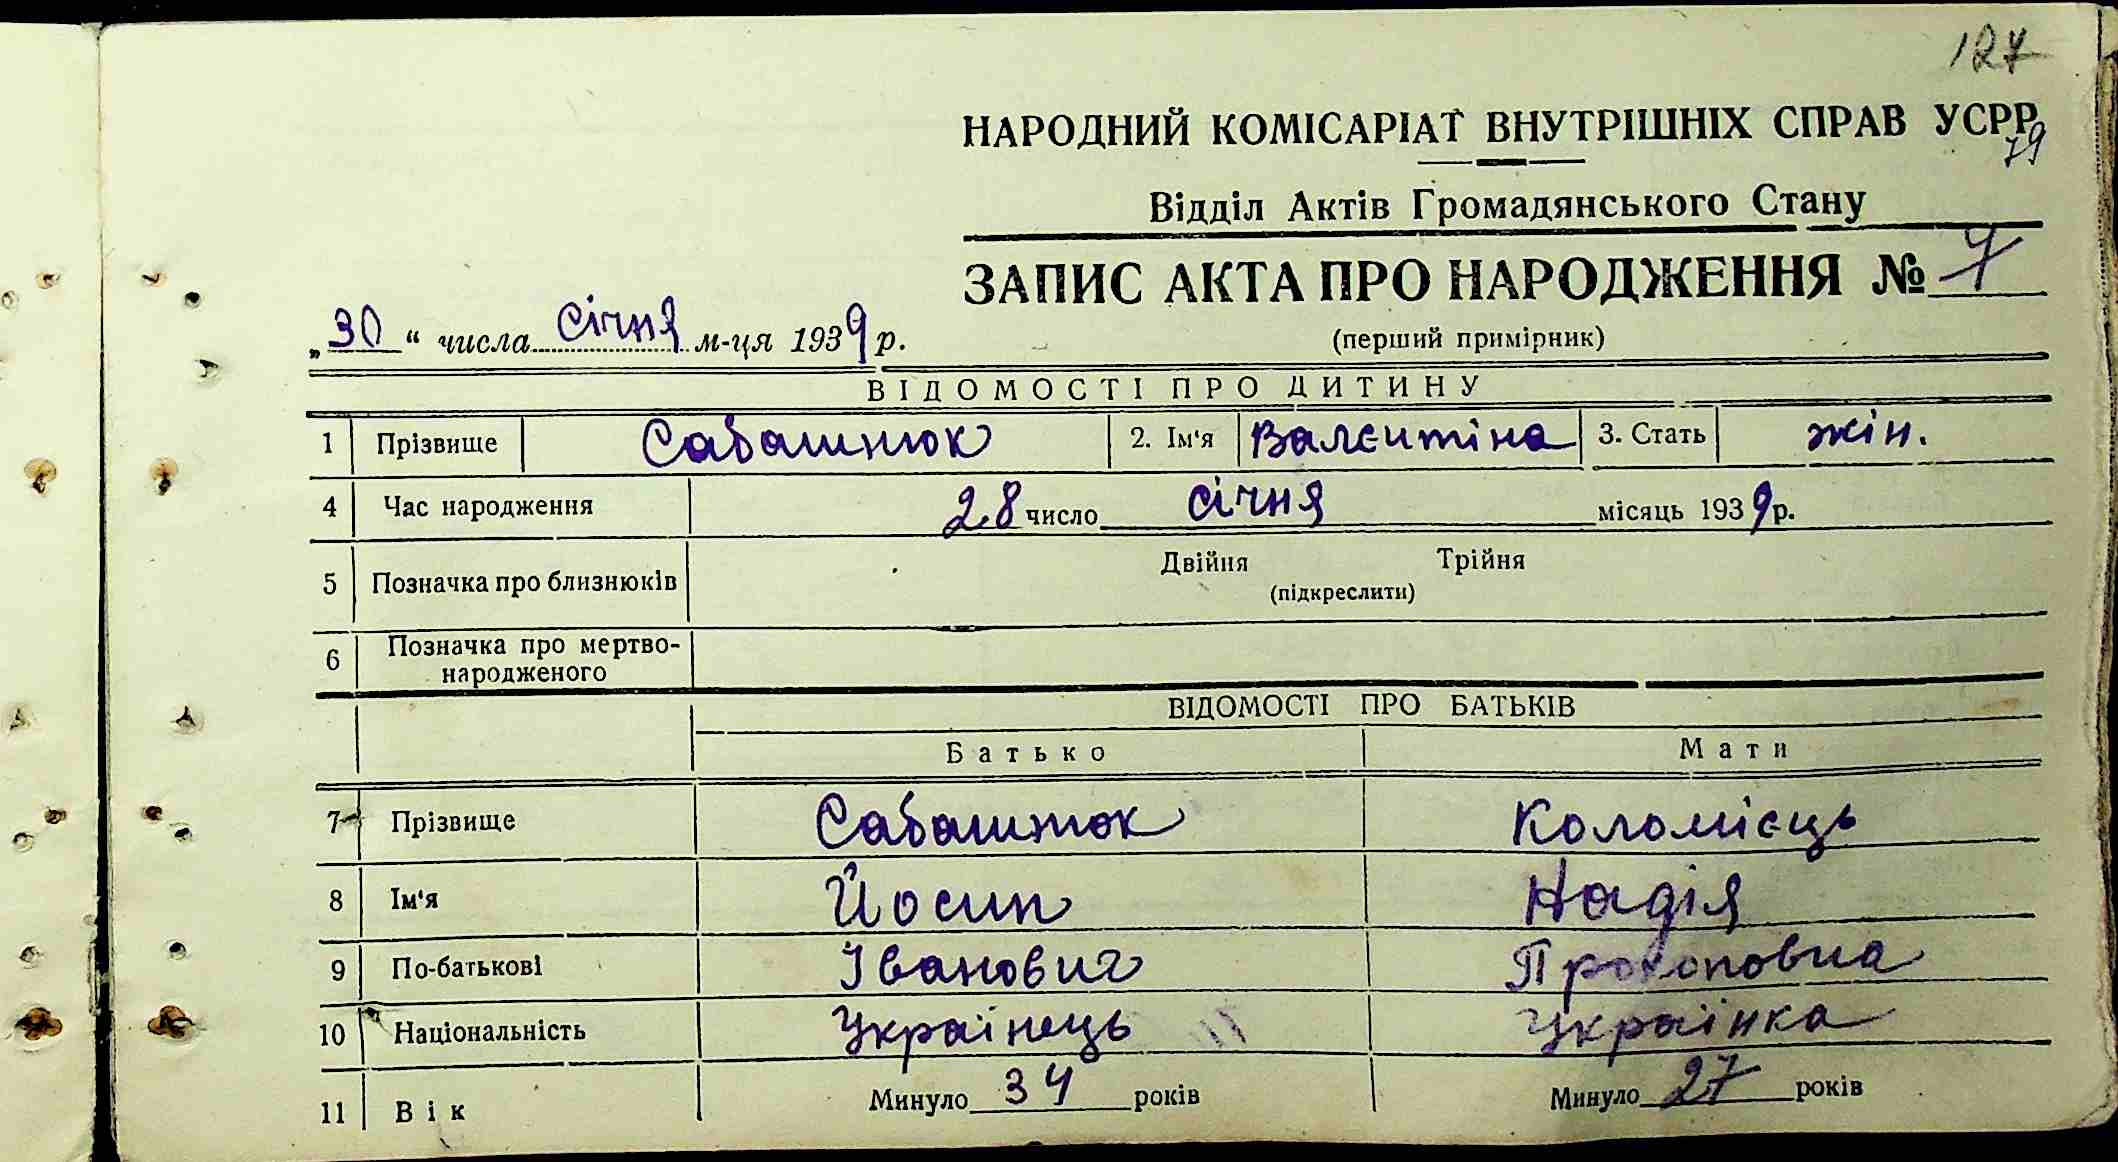 127
НАРОДНИЙ КОМІСАРІАТ ВНУТРІШНІХ СПРАВ УСРР
79
Відділ Актів Громадянського Стану
ЗАПИС АКТА ПРО НАРОДЖЕННЯ № 7
„30“ числа січня м-ця 1939 р.
(перший примірник)
ВІДОМОСТІ ПРО ДИТИНУ
1 Прізвище Сабашнюк 2. Ім'я Валєнтіна 3. Стать жін.
4 Час народження 28 число січня місяць 1939 р.
5 Позначка про близнюків Двійня Трійня
(підкреслити)
6 Позначка про мертво-
народженого
ВІДОМОСТІ ПРО БАТЬКІВ
Батько Мати
7 Прізвище Сабашнюк Коломієць
8 Ім'я Йосип Надія
9 По-батькові Іванович Прокоповна
10 Національність Українець Українка
11 Вік Минуло 34 років Минуло 27 років